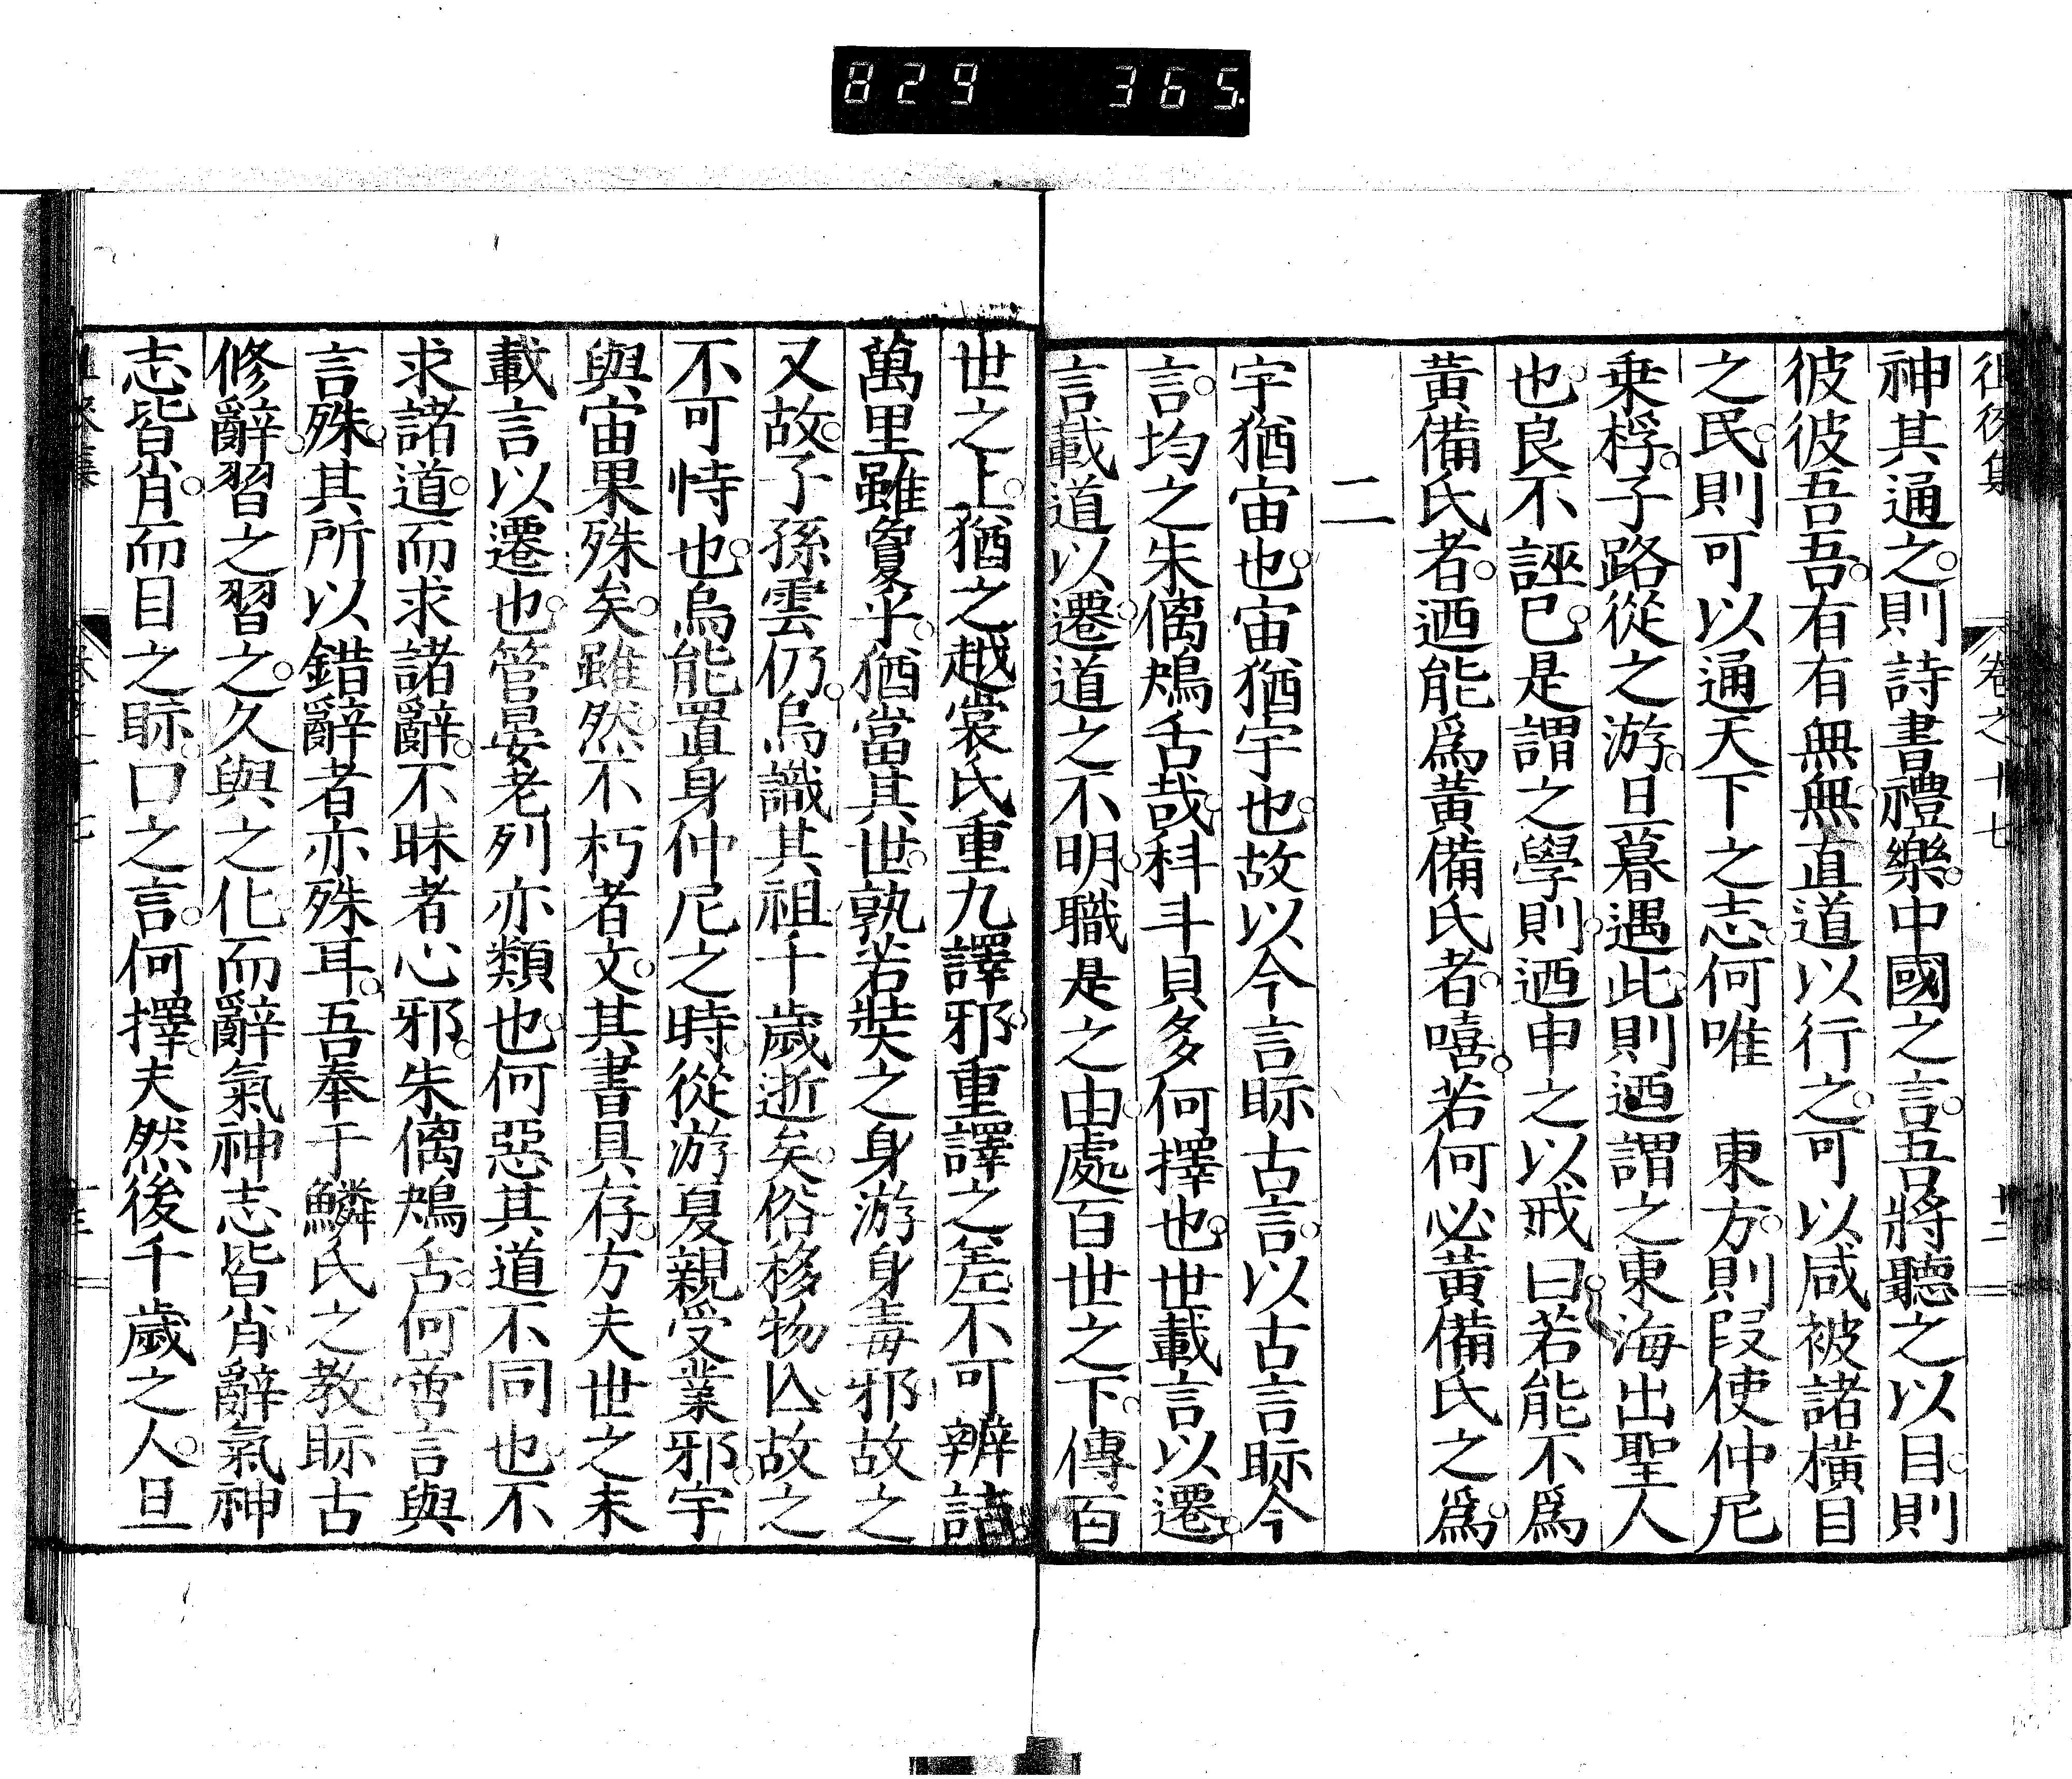 829 365.
徂徠集 卷之十七 十二
神其通之則詩書禮樂中國之言吾將聽之以目則
彼彼吾吾有有無無直道以行之可以咸被諸橫目
之民則可以通天下之志何唯 東方則叚使仲尼
乗桴子路從之游旦暮遇此則迺謂之東海出聖人
也良不誣已是謂之學則迺申之以戒曰若能不爲
黃備氏者迺能爲黃備氏者嘻若何必黃備氏之爲
二
宇猶宙也宙猶宇也故以今言眎古言以古言眎今
言均之朱𠌯鴂舌哉科斗貝多何擇也世載言以遷
言載道以遷道之不明職是之由處百世之下傳百
世之上猶之越裳氏重九譯邪重譯之差不可辨詰
萬里雖敻乎猶當其世孰若奘之身游身毒邪故之
又故子孫雲仍烏識其祖千歲逝矣俗移物亾故之
不可恃也烏能置身仲尼之時從游夏親受業邪宇
與宙果殊矣雖然不朽者文其書具存方夫世之未
載言以遷也管晏老列亦類也何惡其道不同也不
求諸道而求諸辭不昧者心邪朱𠌯鴂舌何啻言與
言殊其所以錯辭者亦殊耳吾奉于鱗氏之教眎古
修辭習之習之久與之化而辭氣神志皆肖辭氣神
志皆肖而目之眎口之言何擇夫然後千歲之人旦